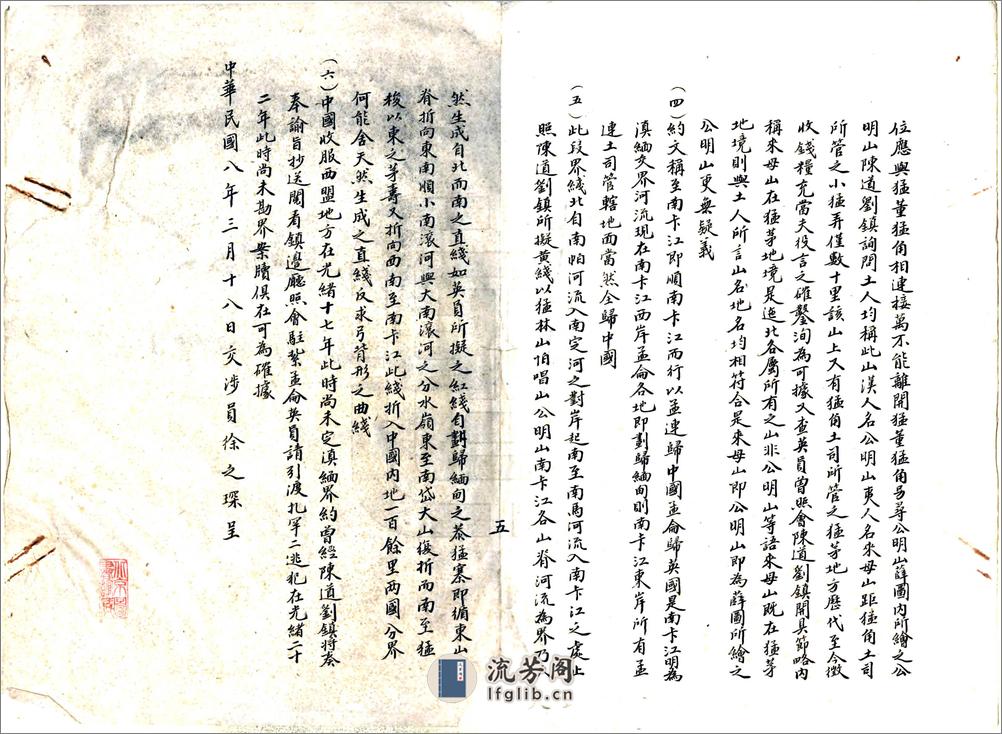 位應與猛董猛角相連接萬不能離開猛董猛角另尋公明山薛圖內所繪之公
明山陳道劉鎮詢問土人均稱此山漢人名公明山夷人名來母山距猛角土司
所管之小猛弄僅數十里該山上又有猛角土司所管之猛茅地方歷代至今徵
收錢糧充當夫役言之確鑿洵為可據又查英員曾照會陳道劉鎮開具節略內
稱來母山在猛茅地境是迤北各屬所有之山非公明山等語來母山既在猛茅
地境則與土人所言山名地名均相符合是來母山即公明山即為薛圖所繪之
公明山更無疑義
(四)約文稱至南卡江即順南卡江而行以孟連歸中國孟侖歸英國是南卡江明為
滇緬交界河流現在南卡江西岸孟侖各地即劃歸緬甸則南卡江東岸所有孟
連土司管轄地面當然全歸中國
(五)此段界綫北自南帕河流入南定河之對岸起南至南馬河流入南卡江之處止
照陳道劉鎮所擬黃綫以猛林山伯唱山公明山南卡江各山脊河流為界乃天
五
然生成自北而南之直綫如英員所擬之紅綫自劃歸緬甸之蔡猛寨即循東山
脊折向東南順小南滾河與大南滾河之分水嶺東至南岱大山復折而南至猛
梭以東之芽壽又折向西南至南卡江此綫折入中國內地一百餘里兩國分界
何能舍天然生成之直綫反求弓背形之曲綫
(六)中國收服西盟地方在光緒十七年此時尚未定滇緬界約曾經陳道劉鎮將奏
奉諭旨抄送閱看鎮邊廳照會駐紮孟侖英員請引渡扎罕二逃犯在光緒二十
二年此時尚未勘界案牘俱在可為確據
中華民國八年三月十八日交涉員徐之琛呈
流芳阁
lfglib.cn